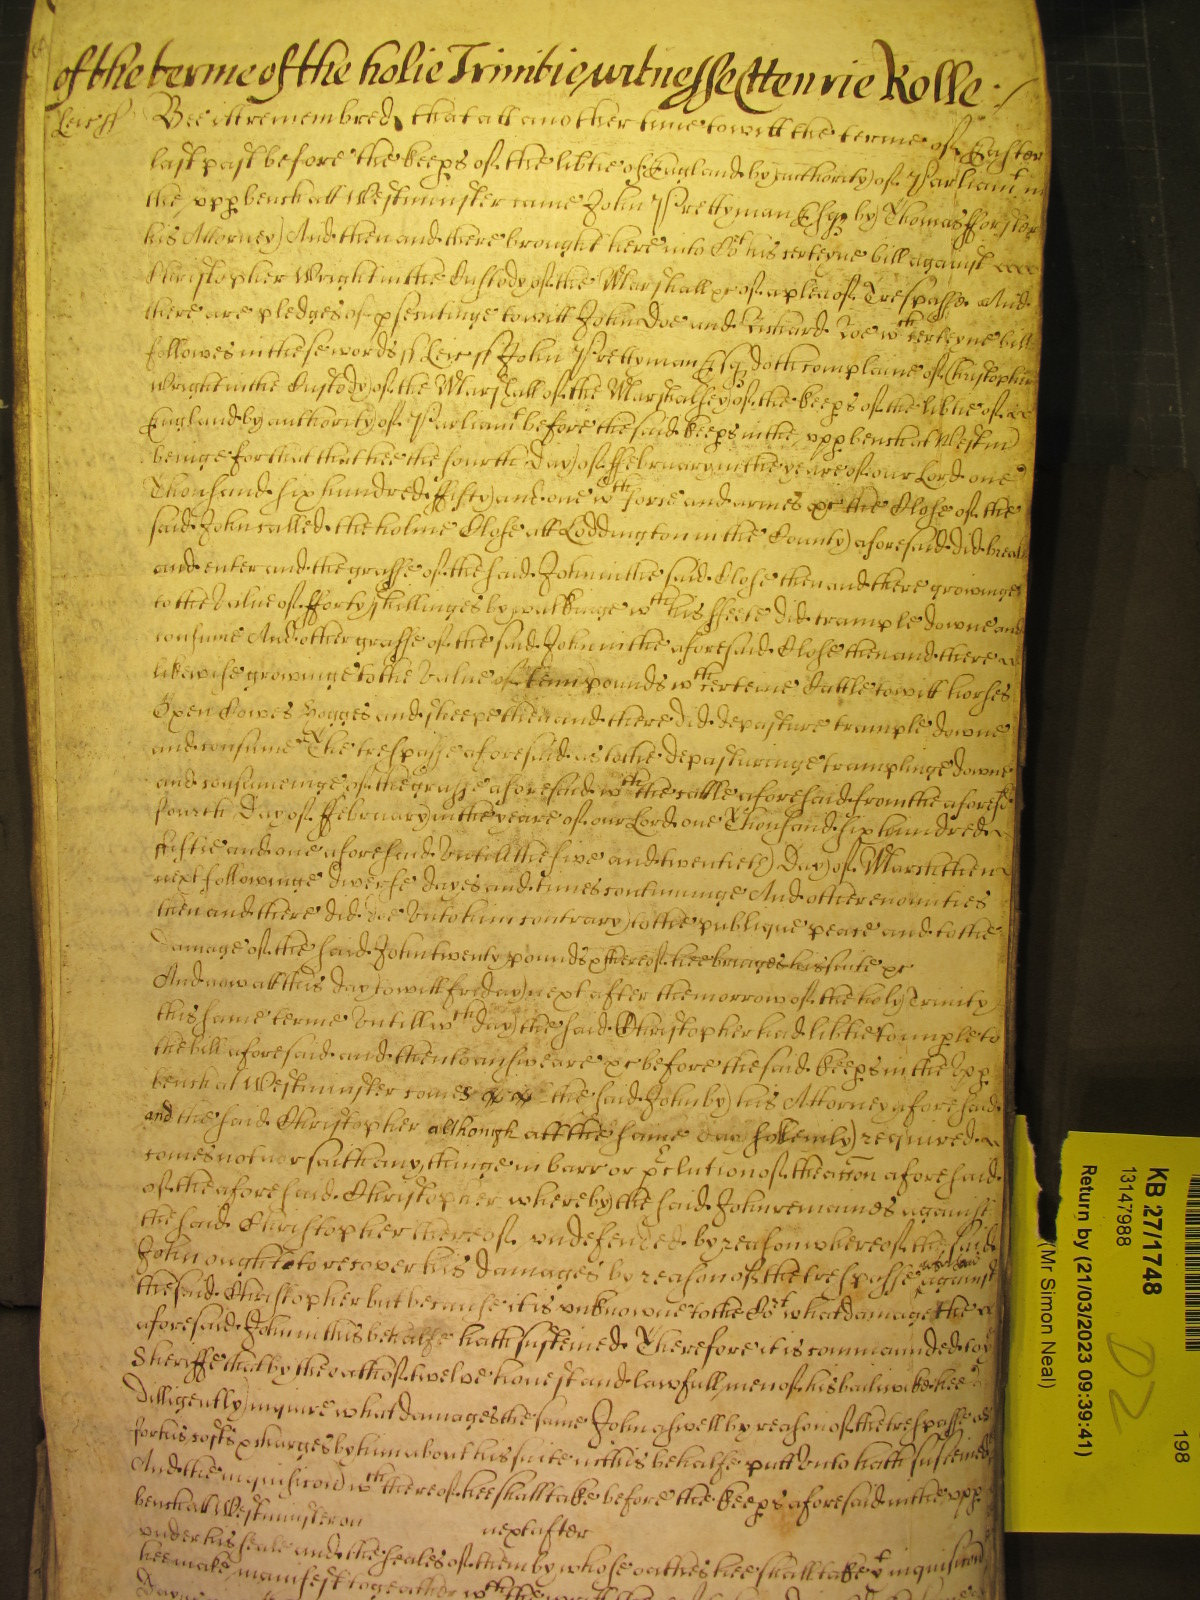 of the terme of the holie Trinitie witnesse Henrie Rolle
Leic ss Bee itt remembred that att another time to witt the terme of Easter
last past before the keeps of the libtie of England by authority of Parliamt in
the upp bench att Westminster came John Prettyman Esqr by Thomas fforster
his Attorney And then and there brought here into Cort his certeyne bill against
Christopher Wright in the Custody of the Marshall &c of a plea of Trespasse And
there are pledges of psecutinge to witt John Doe and Richard Roe wth certeyne bill
followes in these words ss Leic ss John Prettyman Esq doth complaine of Christopher
Wright in the Custody of the Marshall of the Marshalsey of the keeps of the libtie of
England by authority of Parliamt before the said keeps in the upp bench at Westm
beinge for that that hee the fourth day of ffebruary in the yeare of our Lord one
Thousand six hundred ffifty and one wth force and armes &c the Close of the
said John called the holme Close att Loddington in the County aforesaid did break
and enter and the grasse of the said John in the said Close then and there growinge
to the value of fforty shillinges by walkinge wth his ffeete did trample downe and
consume And other grasse of the said John in the aforesaid Close then and there
likewise growinge to the value of tenn pounds wth certeine Cattle to witt horses
Oxen Cowes Hogges and sheepe then and there did depasture trample downe
and consume The trespasse aforesaid as to the depasturinge tramplinge downe
and consumeinge of the grasse aforesaid wth the cattle aforesaid from the aforesd
fourth Day of ffebruary in the yeare of our Lord one Thousand six hundred
fiftie and one aforesaid untill the five and twentieth Day of March then
next followinge diverse dayes and times continuinge And other enormities
then and there did doe unto him contrary to the publique peace and to the
damage of the said John twenty pounds & thereof hee bringes his suite &c
And now att this day to witt ffriday next after the morrow of the holy Trinity
this same terme untill wth day the said Christopher had libtie to imple to
the bill aforesaid and then to answeare &c before the said keeps in the upp
bench at Westminster comes the said John by his Attorney aforesaid
and the said Christopher although att the same day solemly required
comes not nor saith any thinge in barr or pclution of the accon aforesaid
of the aforesaid Christopher whereby the said John remaines against
the said Christopher thereof undefended by reason whereof the said
John ought to recover his damages by reason of the trespasse aforesaid against
the said Christopher but because it is unknowne to the Cort what damage the
aforesaid John in this behalfe hath susteined Therefore it is commaunded to ye
Sheriffe that by the oath of twelve honest and lawfull men of his bailiwicke hee
dilligently inquire what damages the same John aswell by reason of the trespasse as
for his costs & charges by him about his suite in this behalfe putt unto hath susteined
And the inquisicon wth thereof hee shall take before the keeps aforesaid in the upp
bench att Westminster on next after
under his seale and the seales of them by whose oathes hee shall take yt inquisicon
hee make manifest togeather wth the writt
KB 27/1748
13147988
Return by (21/03/2023 09:39:41)
(Mr Simon Neal)
D2
198